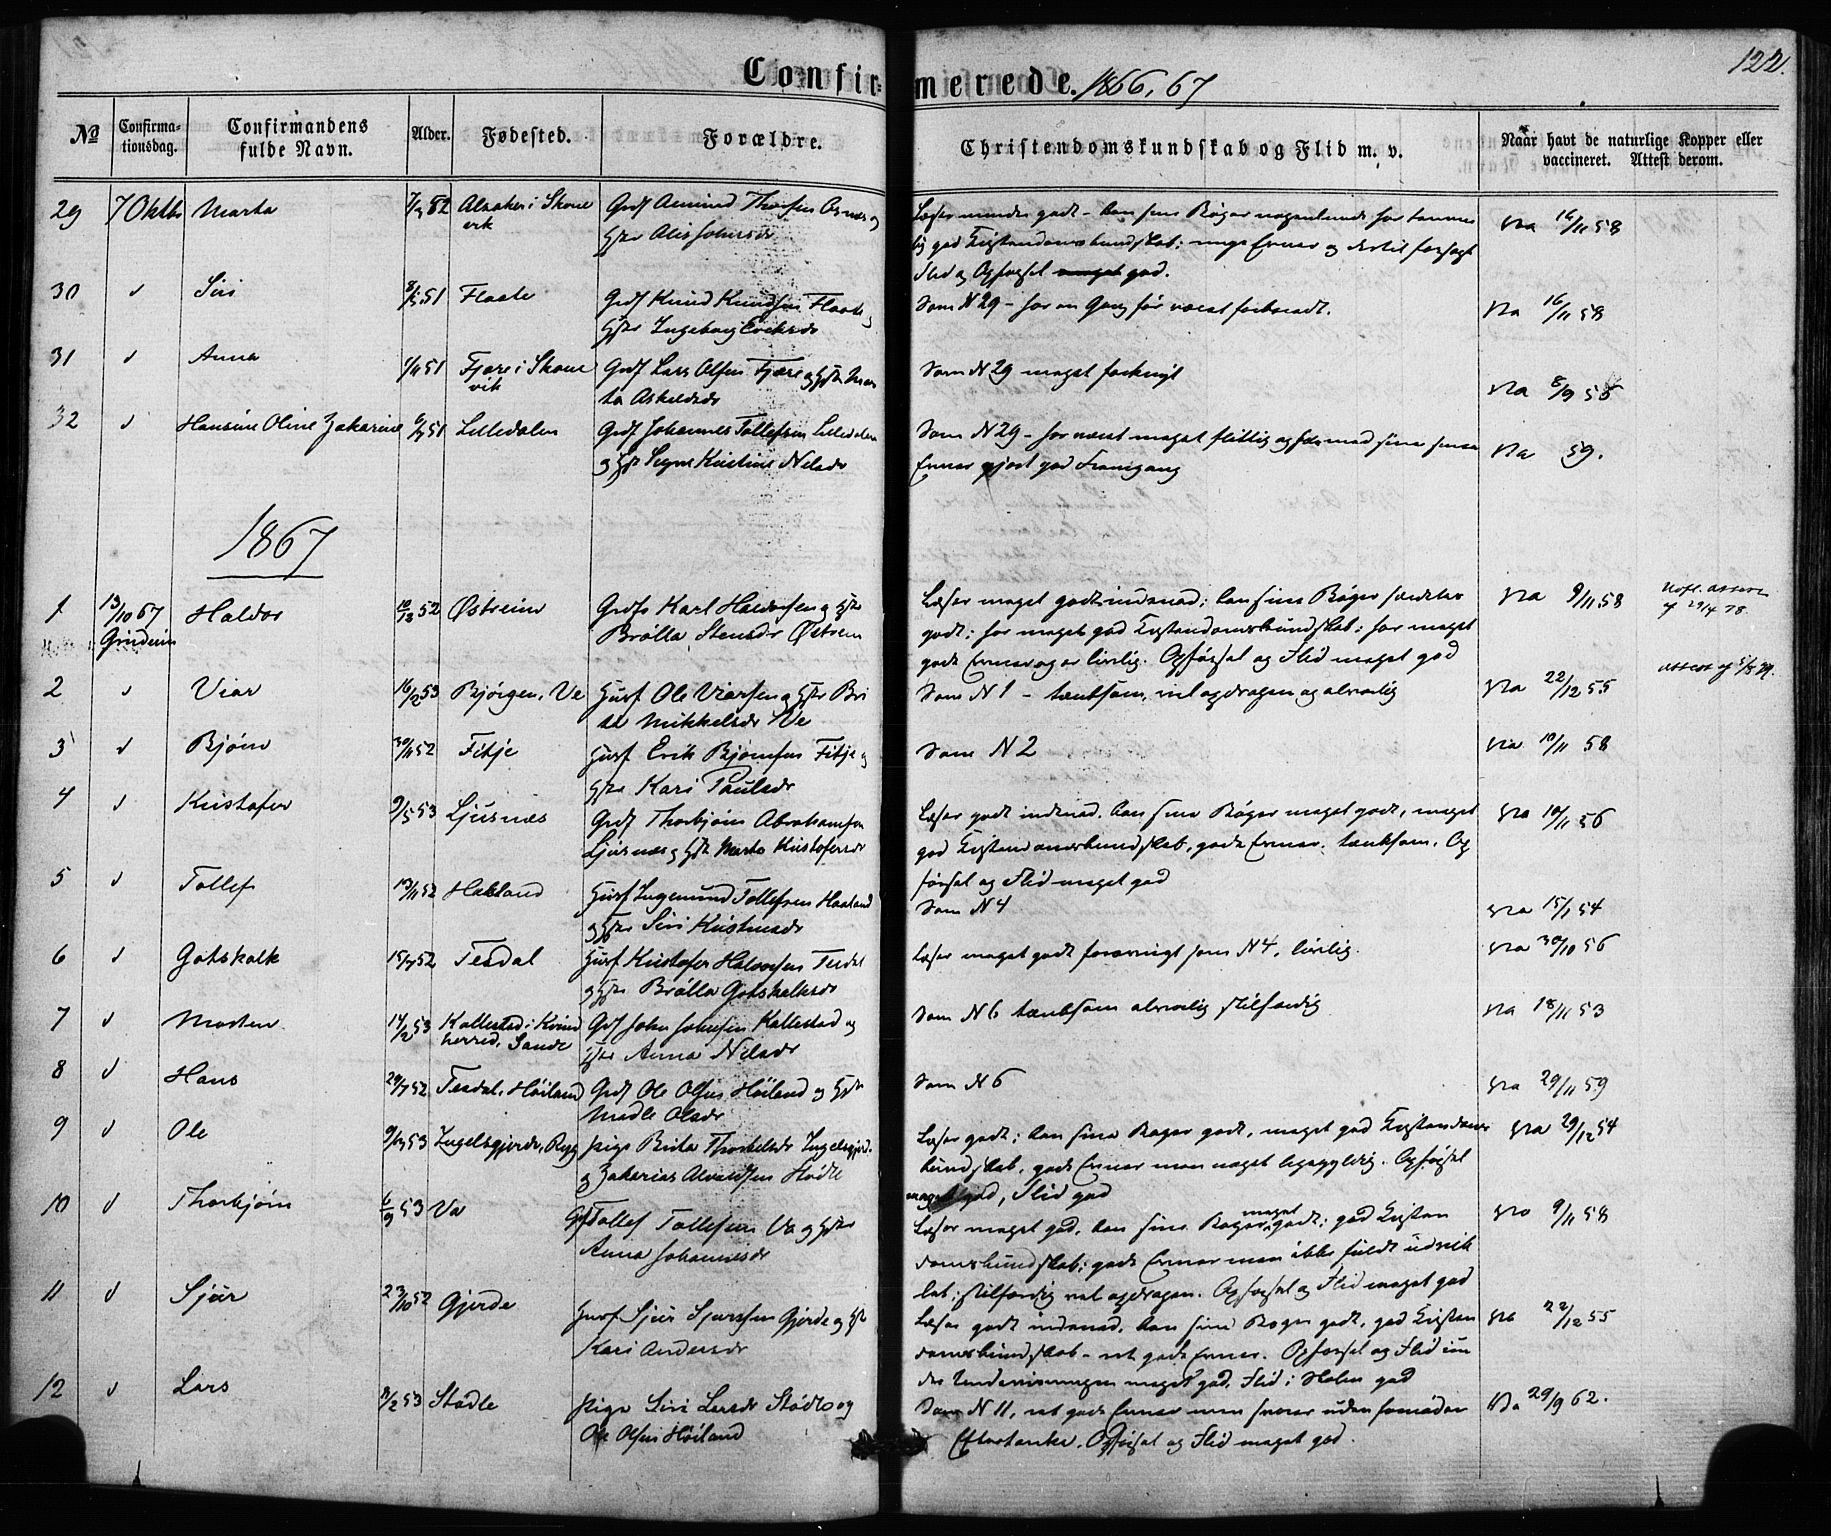 Confirmerede. 1866, 67
122.
№
Confirmationsdag.
Confirmandens fulde Navn.
Alder.
Fødested.
Forældre.
Christendomskundskab og Flid m. v.
Naar havt de naturlige Kopper eller vaccineret. Attest derom.
29 7 Oktbr Marta Skone
Læser mindre godt - kan sine Bøger nogenlunde har temme
lig god Kristendomskundskab;
Flid og Opførsel god.
va 16/11 58
30 Siri 8/5 51 Flaate Grdf Knud Knudsen Flaate
Hstr Ingeborg
Som N 29 - har en Gang før været
va 16/11 58
31 Anna 1/11 51 Fjære i Skone
vik
Grdf Lars Olsen Fjære og Hstr Mar
ta Askeldsdr
Som N 29 meget
va 8/9 55
32 Hansine Oline Zakarine 51 Lilledalen Grdf Johannes Tollefsen Lilledalen
og Hstr Signe Kristine Nilsdr
Som N 29 - har været meget flittig og har med sine
Evner gjort god Fremgang
va 59.
1867
1 13/10 67 Haldor 52 Østreim Grdf Karl Haldorsen og Hstr
Grindeim
Brølla Stensdr Østrem
Læser meget godt indenad; kan sine Bøger særdeles
godt; har meget god Kristendomskundskab; har meget
gode Evner og er livlig. Opførsel og Flid meget god
va 9/11 58
2 Viar 16/2 53 Bjørgen, Ve Husf Ole Viarsen og Hstr Bri
ta Mikkelsdr Ve
Som N 1 - tænksom, vel opdragen og alvorlig
va 22/12 55
3 Bjørn 30/11 52 Fitje Husf Erik Bjørnsen Fitje og
Hstr Kari Paulsdr
Som N 2
va 10/11 58
4 Kristofer 9/5 53 Ljusnæs Grdf Thorbjørn Abrahamsen
Ljusnæs og Hstr Marta Kristofersdr
Læser godt indenad. kan sine Bøger meget godt, meget
god Kristendomskundskab, gode Evner, tænksom. Op
førsel og Flid meget god
va 10/11 56
5 Tollef 13/11 52 Haaland Husf Ingemund Tollefsen Haaland
og Hstr Siri
Som N 4
va 15/1 54
6 Gotskalk 15/7 52 Tesdal Husf Kristofer Halvorsen Tesdal
og Hstr Brølla Gotskalksdr
Læser meget godt forøvrigt som N 4, livlig.
va 30/10 56
7 Morten 14/2 53 Kallestad i Kvind
herred, Sande
Grdf John Johnsen Kallestad og
Hstr Anna Nilsdr
Som N 6 tænksom alvorlig stilfærdig
va 18/11 53
8 Hans 29/7 52 Tesdal, Høiland Grdf Ole Olsen Høiland og Hstr
Madle Olsdr
Som N 6
va 29/11 59
9 Ole 53 Ingelsgjerde, Rygg Pige Brita Thorkelsdr Ingelsgjerd.
og Zakarias Stødle
Læser godt; kan sine Bøger godt, meget god Kristendoms
kundskab, gode Evner men noget ligegyldig. Opførsel
meget god, Flid god
va 29/12 54
10 Thorbjørn 6/9 53 Va Gf Tollef Tollefsen Va og Hstr
Anna Johannesdr
Læser meget god, kan sine Bøger meget godt; god Kristen
domskundskab; gode Evner men ikke fuldt udvik
let; stilfærdig vel opdragen. Opførsel og Flid meget god
va 9/11 58
11 Sjur 23/10 52 Gjerde Husf Sjur Sjursen Gjerde og Hstr
Kari Andersdr
Læser godt indenad, kan sine Bøger godt, god Kristen
domskundskab - ret gode Evner. Opførsel og Flid un
der Undervisningen meget god, Flid i Skolen god
va 22/12 55
12 Lars 8/2 53 Stødle Pige Siri Larsdr Stødle og
Ole Olsen Høiland
Som N 11, ret gode Evner men svarer uden fornøden
Eftertanke. Opførsel og Flid meget god.
va 29/9 62.